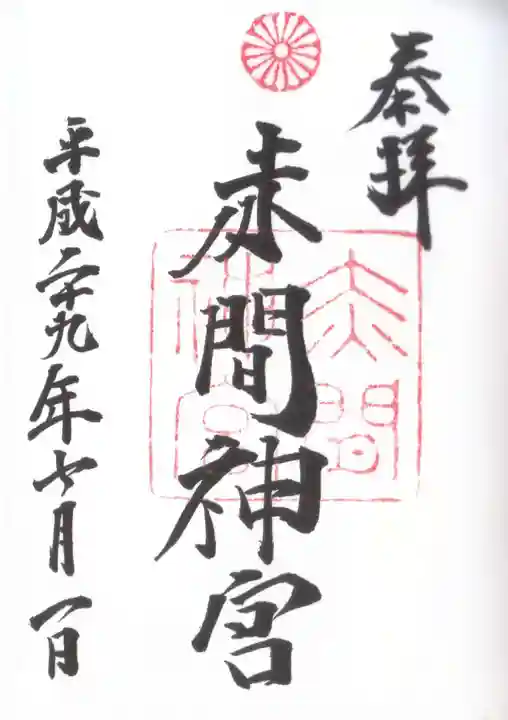 奉拝
赤間神宮
赤間神宮
平成二十九年七月一日